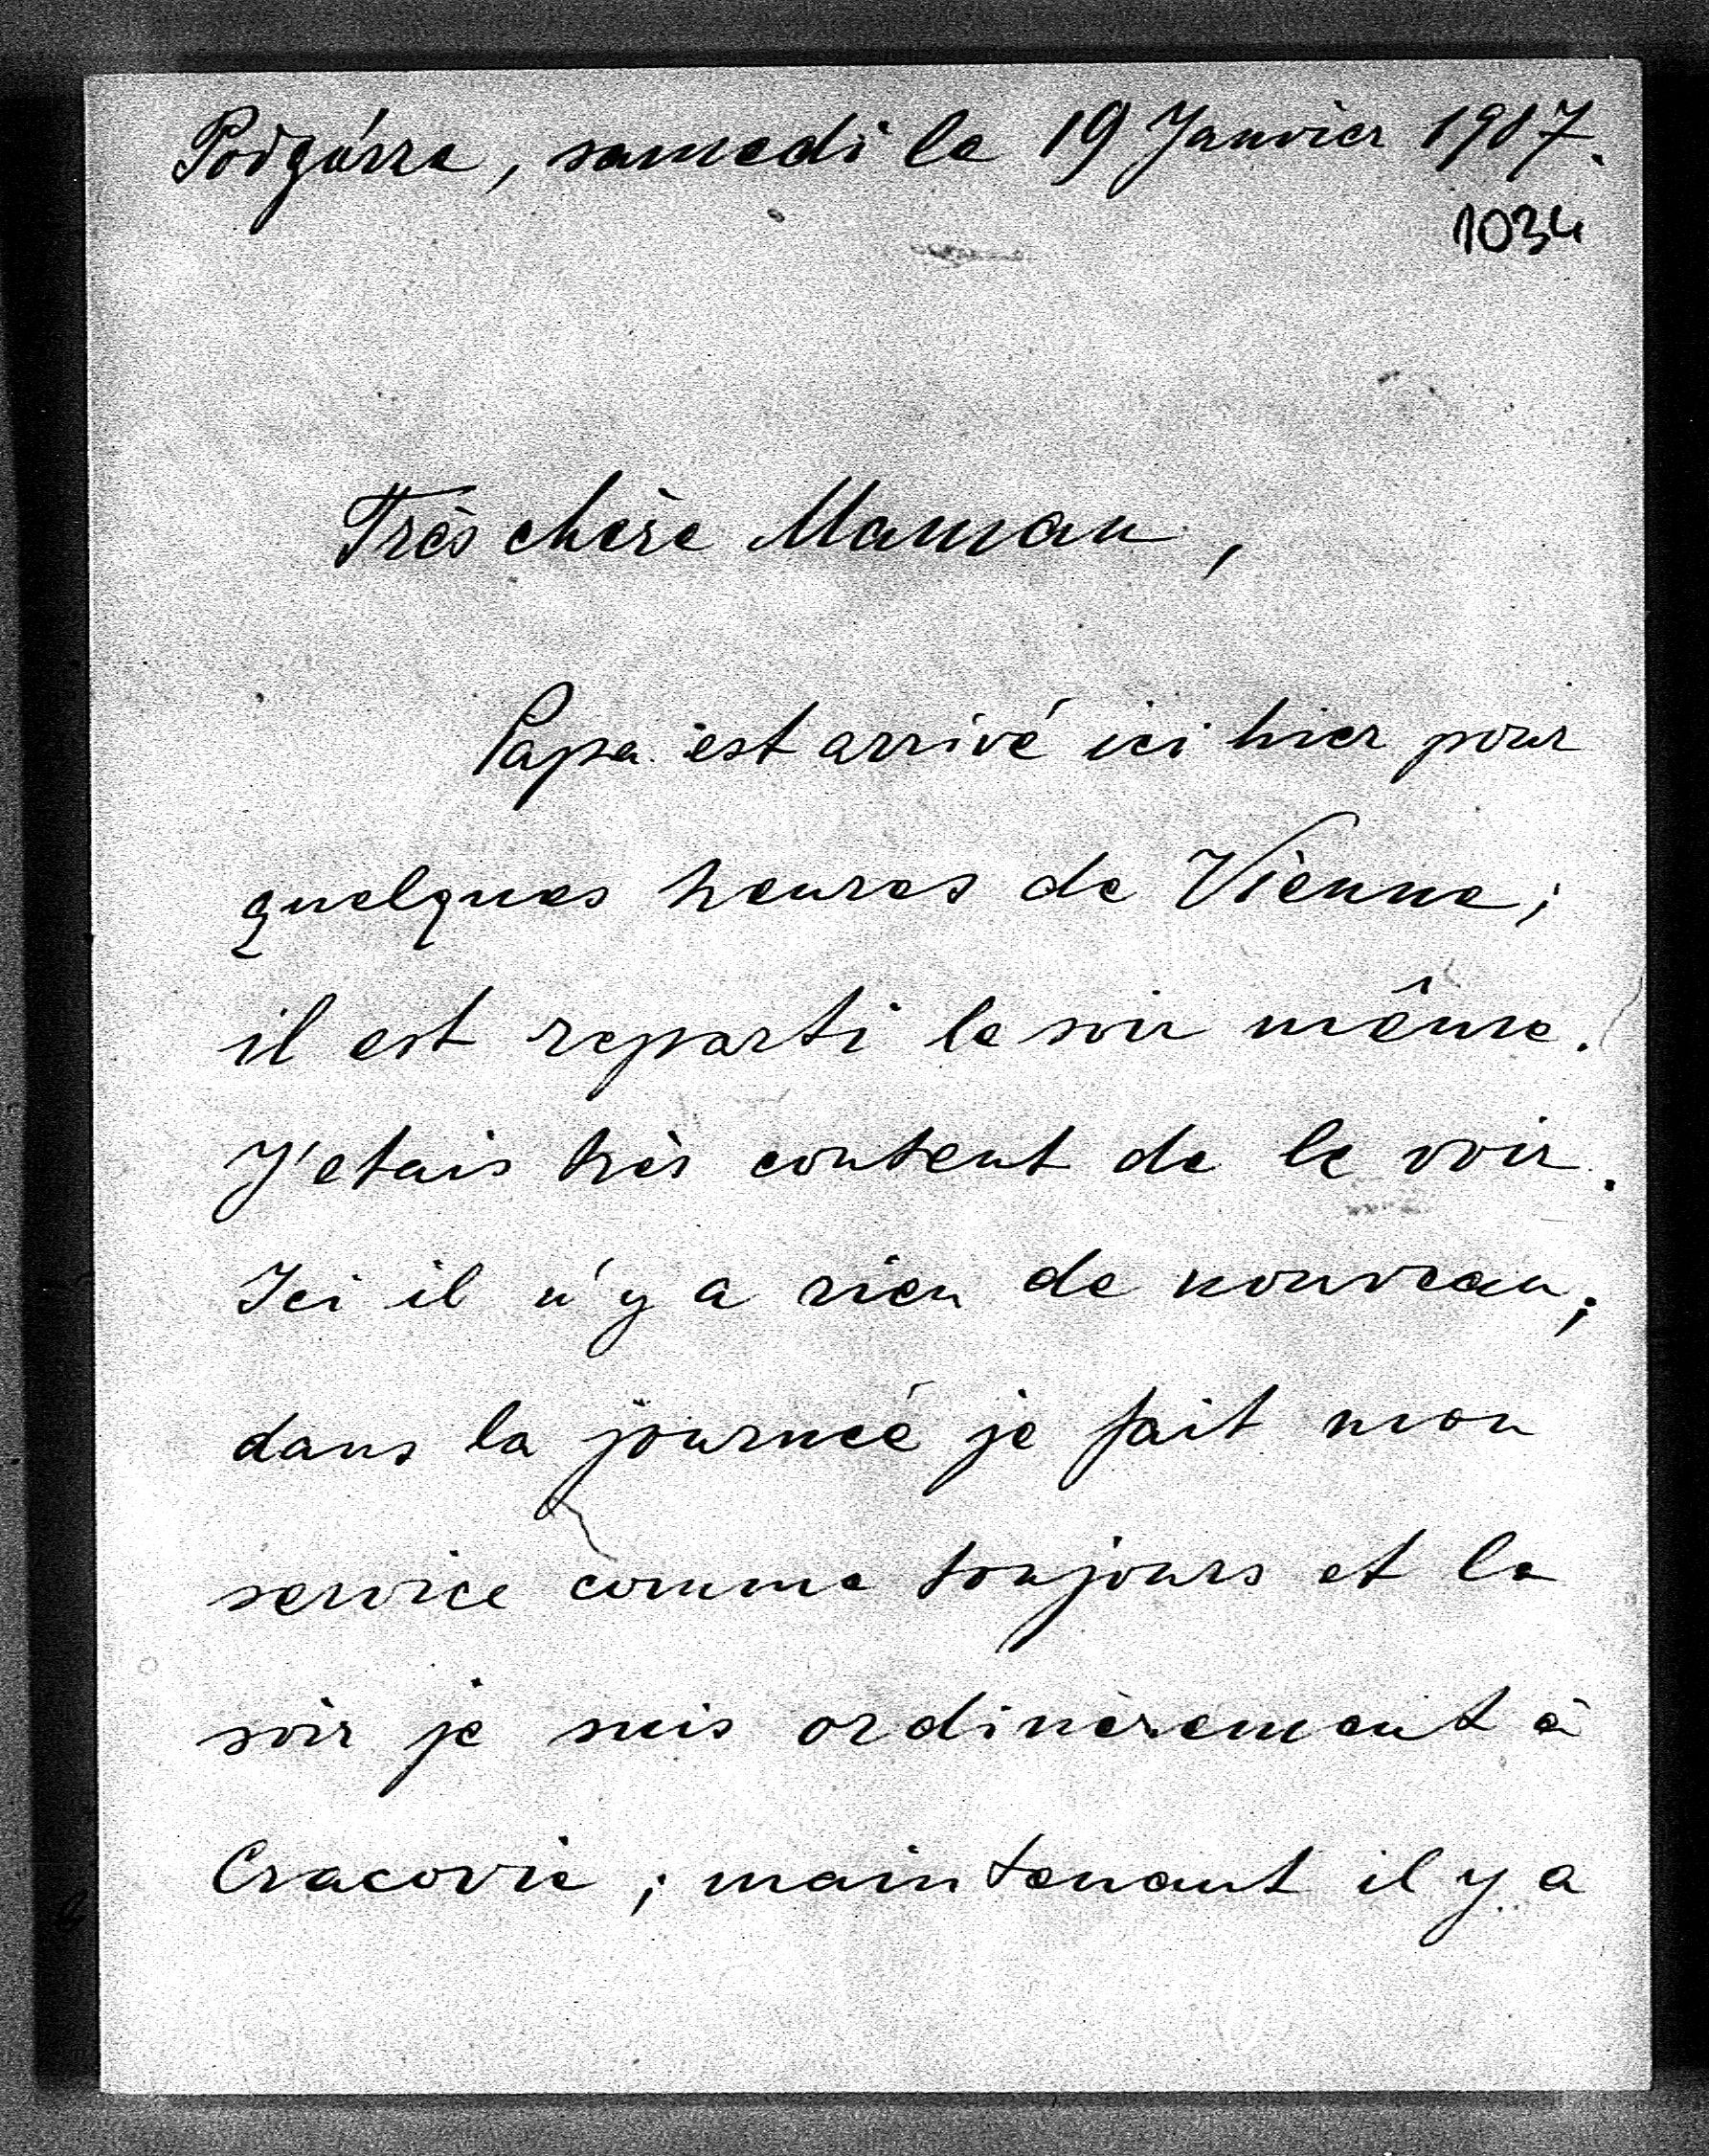 Podgórze, samedi le 19 Janvier 1907.
1034
Très chère Maman,
Papa est arrivé ici hier pour
quelques heures de Vienne;
il est reparti le soir même.
J'etais très content de le voir.
Ici il n'y a rien de nouveau;
dans la journeé je fait mon
service comme toujours et le
soir je suis ordinèrement à
Cracovie; maintenant il y a